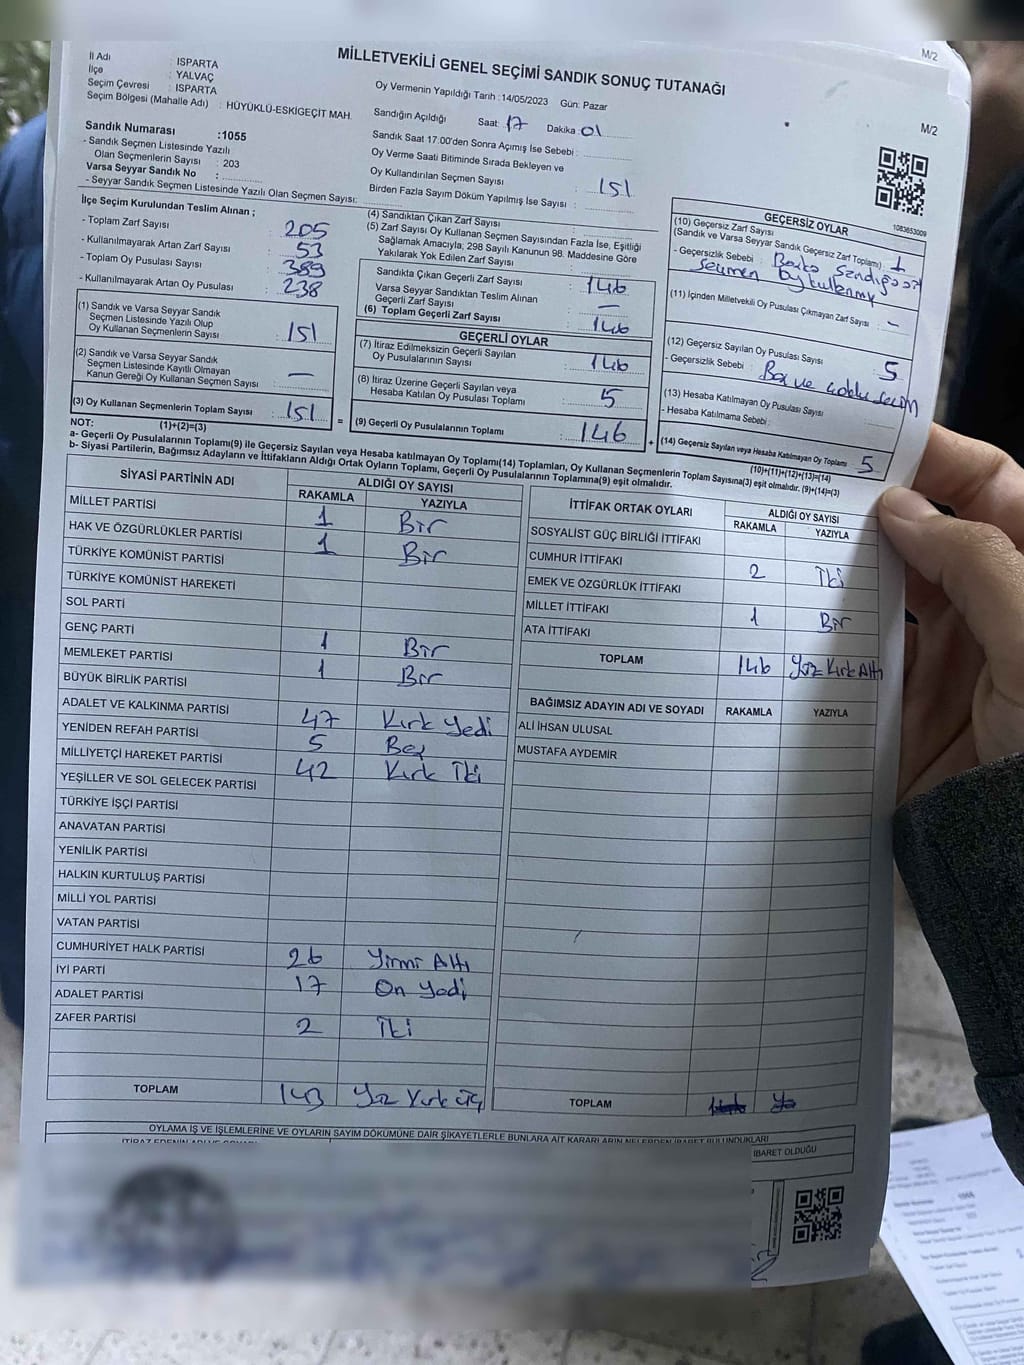 M/2
MİLLETVEKİLİ GENEL SEÇİMİ SANDIK SONUÇ TUTANAĞI
M/2
İl Adı : ISPARTA
İlçe : YALVAÇ
Seçim Çevresi : ISPARTA
Seçim Bölgesi (Mahalle Adı) : HÜYÜKLÜ-ESKİGEÇİT MAH.
Sandık Numarası :1055
- Sandık Seçmen Listesinde Yazılı
Olan Seçmenlerin Sayısı : 203
Varsa Seyyar Sandık No :
- Seyyar Sandık Seçmen Listesinde Yazılı Olan Seçmen Sayısı:
Oy Vermenin Yapıldığı Tarih :14/05/2023 Gün: Pazar
Sandığın Açıldığı Saat: 17 Dakika 01
Sandık Saat 17:00'den Sonra Açımış İse Sebebi :
Oy Verme Saati Bitiminde Sırada Bekleyen ve
Oy Kullandırılan Seçmen Sayısı : 151
Birden Fazla Sayım Döküm Yapılmış İse Sayısı :
İlçe Seçim Kurulundan Teslim Alınan ;
- Toplam Zarf Sayısı : 205
- Kullanılmayarak Artan Zarf Sayısı : 53
- Toplam Oy Pusulası Sayısı : 389
- Kullanılmayarak Artan Oy Pusulası : 238
(1) Sandık ve Varsa Seyyar Sandık
Seçmen Listesinde Yazılı Olup
Oy Kullanan Seçmenlerin Sayısı : 151
(2) Sandık ve Varsa Seyyar Sandık
Seçmen Listesinde Kayıtlı Olmayan
Kanun Gereği Oy Kullanan Seçmen Sayısı : —
(3) Oy Kullanan Seçmenlerin Toplam Sayısı : 151
(1)+(2)=(3)
(4) Sandıktan Çıkan Zarf Sayısı :
(5) Zarf Sayısı Oy Kullanan Seçmen Sayısından Fazla İse, Eşitliği
Sağlamak Amacıyla; 298 Sayılı Kanunun 98. Maddesine Göre
Yakılarak Yok Edilen Zarf Sayısı :
Sandıkta Çıkan Geçerli Zarf Sayısı : 146
Varsa Seyyar Sandıktan Teslim Alınan
Geçerli Zarf Sayısı : —
(6) Toplam Geçerli Zarf Sayısı : 146
GEÇERLİ OYLAR
(7) İtiraz Edilmeksizin Geçerli Sayılan
Oy Pusulalarının Sayısı : 146
(8) İtiraz Üzerine Geçerli Sayılan veya
Hesaba Katılan Oy Pusulası Toplamı : 5
= (9) Geçerli Oy Pusulalarının Toplamı : 146 +
GEÇERSİZ OYLAR
1083653009
(10) Geçersiz Zarf Sayısı
(Sandık ve Varsa Seyyar Sandık Geçersiz Zarf Toplamı) : 1
- Geçersizlik Sebebi : Başka
seçmen
(11) İçinden Milletvekili Oy Pusulası Çıkmayan Zarf Sayısı : —
(12) Geçersiz Sayılan Oy Pusulası Sayısı : 5
- Geçersizlik Sebebi : Boş ve çoklu seçim
(13) Hesaba Katılmayan Oy Pusulası Sayısı :
- Hesaba Katılmama Sebebi :
(14) Geçersiz Sayılan veya Hesaba Katılmayan Oy Toplamı : 5
(10)+(11)+(12)+(13)=(14)
NOT:
a- Geçerli Oy Pusulalarının Toplamı(9) ile Geçersiz Sayılan veya Hesaba katılmayan Oy Toplamı(14) Toplamları, Oy Kullanan Seçmenlerin Toplam Sayısına(3) eşit olmalıdır. (9)+(14)=(3)
b- Siyasi Partilerin, Bağımsız Adayların ve İttifakların Aldığı Ortak Oyların Toplamı, Geçerli Oy Pusulalarının Toplamına(9) eşit olmalıdır.
SİYASİ PARTİNİN ADI ALDIĞI OY SAYISI
RAKAMLA YAZIYLA
MİLLET PARTİSİ 1 Bir
HAK VE ÖZGÜRLÜKLER PARTİSİ 1 Bir
TÜRKİYE KOMÜNİST PARTİSİ
TÜRKİYE KOMÜNİST HAREKETİ
SOL PARTİ
GENÇ PARTİ 1 Bir
MEMLEKET PARTİSİ 1 Bir
BÜYÜK BİRLİK PARTİSİ
ADALET VE KALKINMA PARTİSİ 47 Kırk Yedi
YENİDEN REFAH PARTİSİ 5 Beş
MİLLİYETÇİ HAREKET PARTİSİ 42 Kırk İki
YEŞİLLER VE SOL GELECEK PARTİSİ
TÜRKİYE İŞÇİ PARTİSİ
ANAVATAN PARTİSİ
YENİLİK PARTİSİ
HALKIN KURTULUŞ PARTİSİ
MİLLİ YOL PARTİSİ
VATAN PARTİSİ
CUMHURİYET HALK PARTİSİ 26 Yirmi Altı
İYİ PARTİ 17 On Yedi
ADALET PARTİSİ
ZAFER PARTİSİ 2 İki
TOPLAM 143 Yüz Kırk Üç
İTTİFAK ORTAK OYLARI ALDIĞI OY SAYISI
RAKAMLA YAZIYLA
SOSYALİST GÜÇ BİRLİĞİ İTTİFAKI
CUMHUR İTTİFAKI 2 İki
EMEK VE ÖZGÜRLÜK İTTİFAKI
MİLLET İTTİFAKI 1 Bir
ATA İTTİFAKI
TOPLAM 146 Yüz Kırk Altı
BAĞIMSIZ ADAYIN ADI VE SOYADI RAKAMLA YAZIYLA
ALİ İHSAN ULUSAL
MUSTAFA AYDEMİR
TOPLAM
OYLAMA İŞ VE İŞLEMLERİNE VE OYLARIN SAYIM DÖKÜMÜNE DAİR ŞİKAYETLERLE BUNLARA AİT KARARLARIN NELERDEN İBARET BULUNDUKLARI
İBARET OLDUĞU